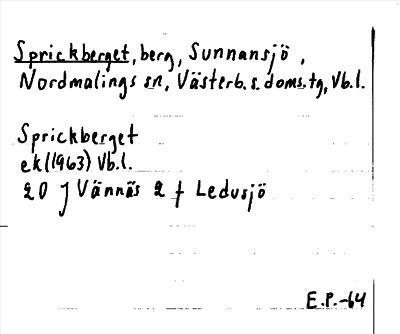 Sprickberget, berg, Sunnansjö,
Nordmalings sn, Västerb. s. doms. tg, Vb. l.
Sprickberget
ek (1963) Vb. l.
20 J Vännäs 2 f Ledusjö
E.P.-64